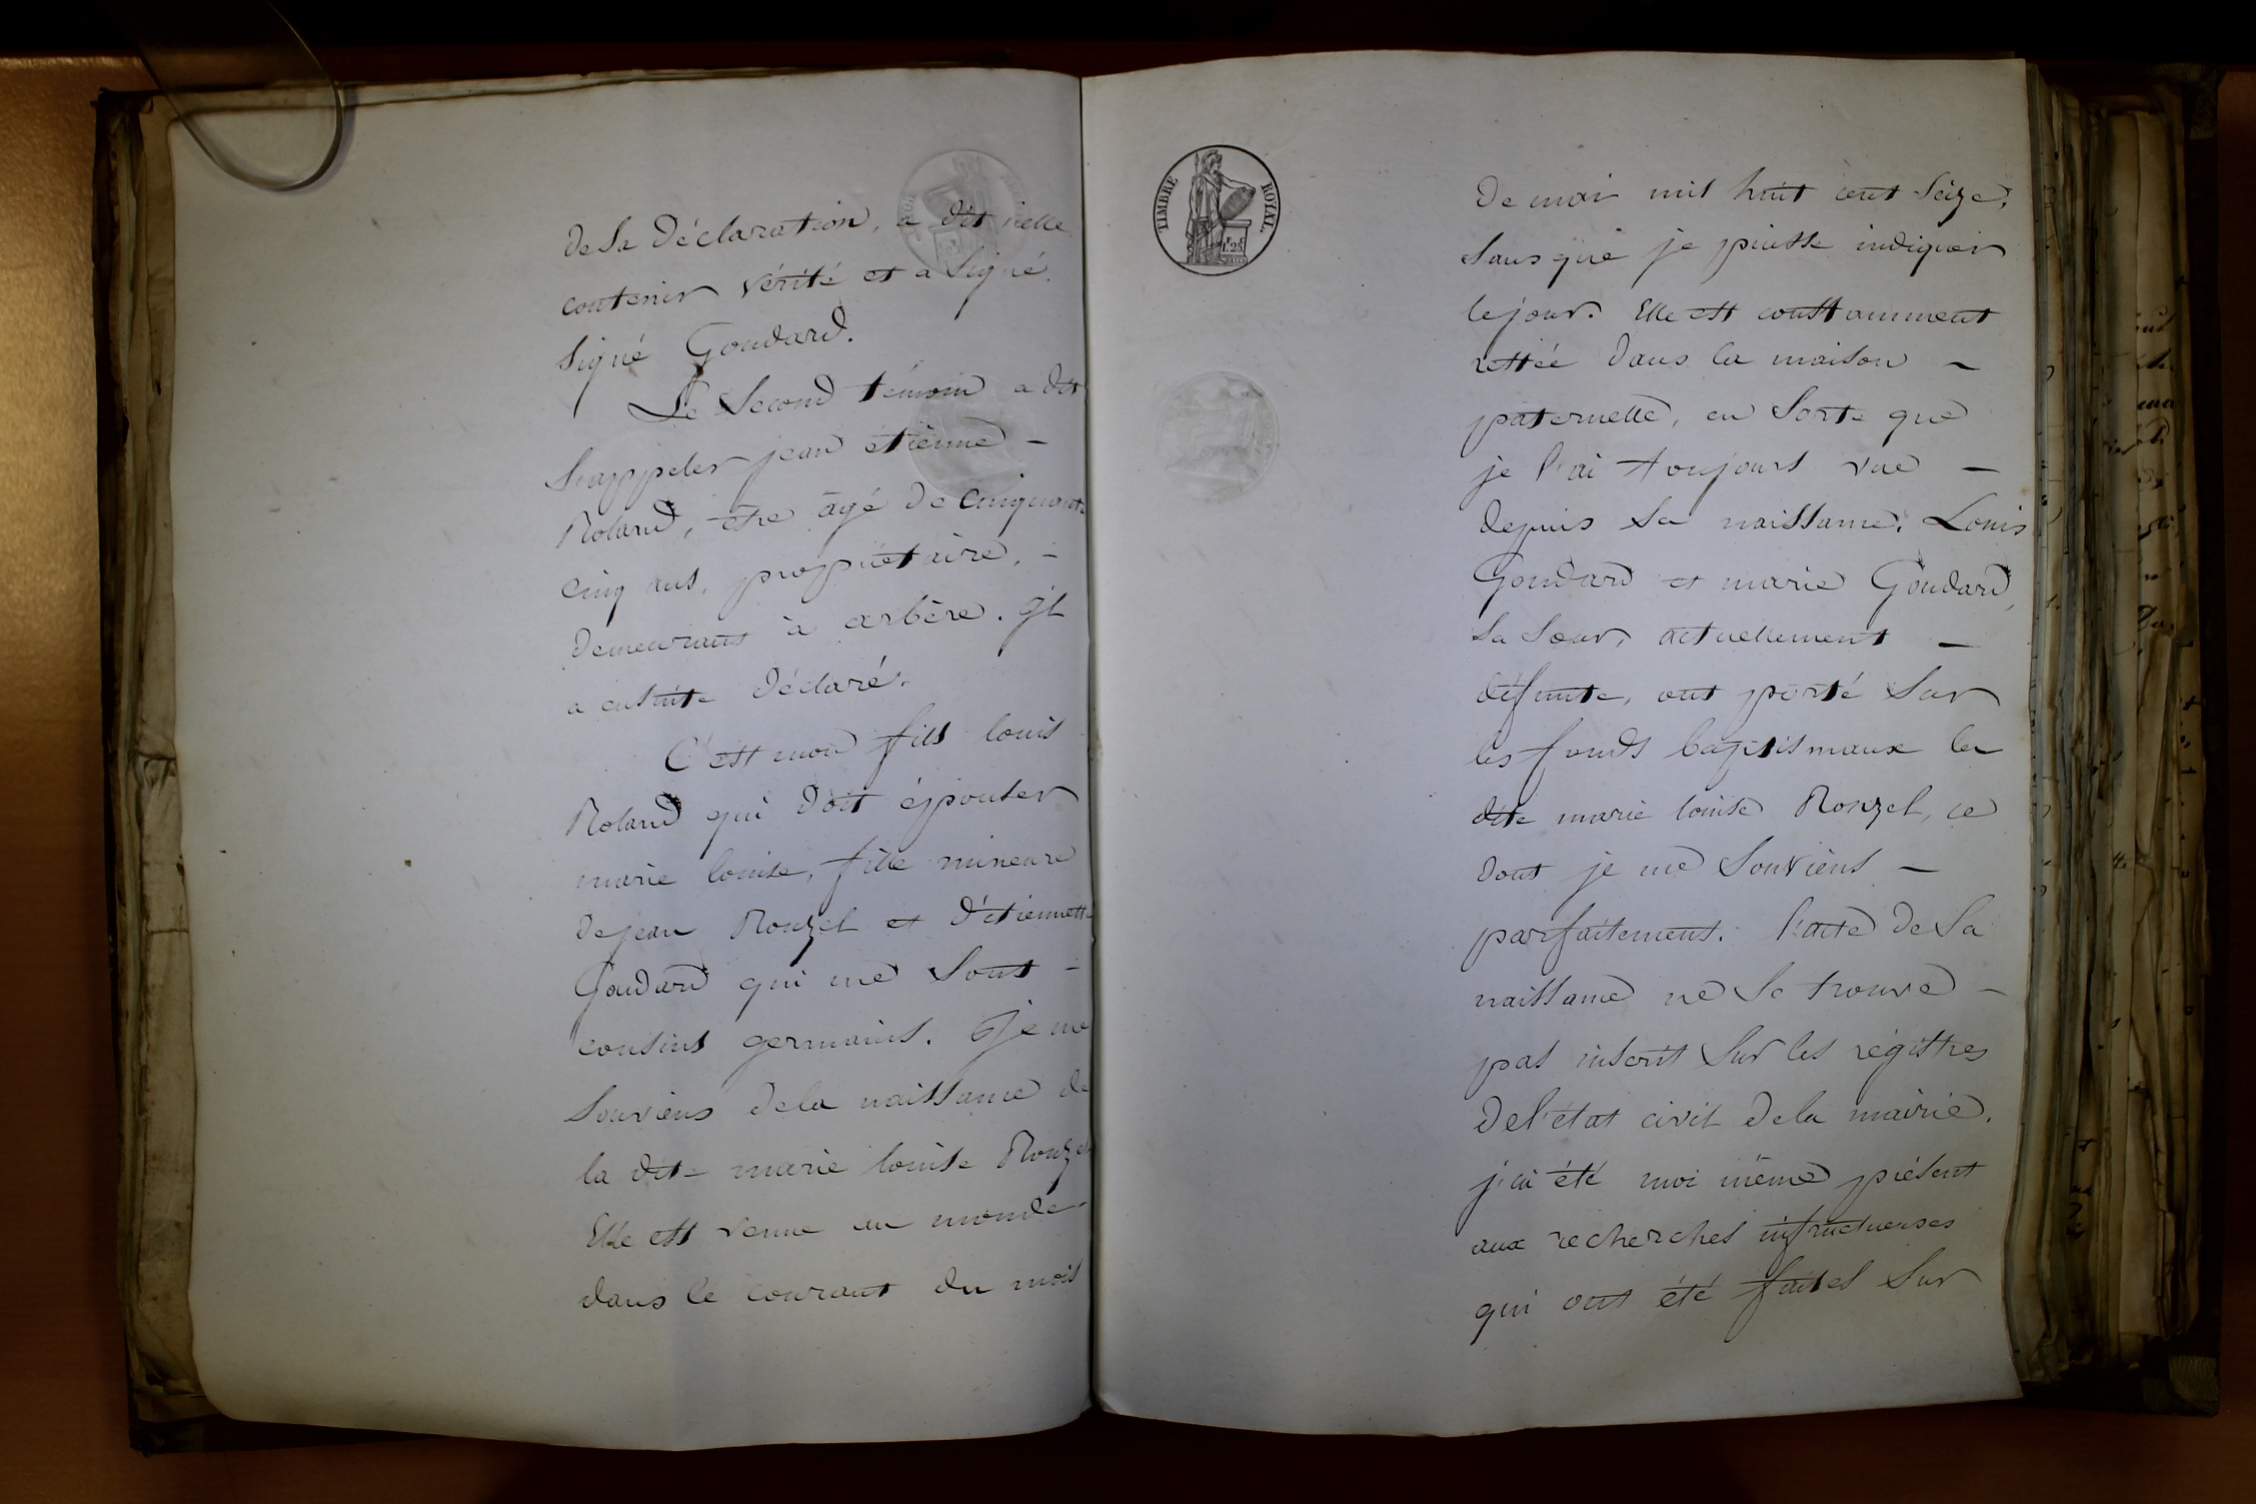 de sa déclaration, a dit icelle
contenir vérité et a signé.
signé Goudard.
Le second témoin a dit
s'appeler jean étienne –
Roland, être âgé de cinquante
cinq ans, propriétaire, –
demeurant à arbère. Il
a ensuite déclaré.
C'est mon fils louis
Roland qui doit épouser
marie louise, fille mineure
de jean Rouzet et d'étiennette
Goudard qui me sont –
cousins germains. Je me
souviens dela naissance de
la dite marie louise Rouzet
Elle est venue au monde
dans le courant du mois
TIMBRE ROYAL
de mai mil huit cent seize,
sans que je puisse indiquer
le jour. Elle est constamment
restée dans la maison –
paternelle, en sorte que
je l'ai toujours vue –
depuis sa naissance. Louis
Goudard et marie Goudard,
sa sœur, actuellement –
défunte, ont porté sur
les fonds baptismaux la
dite marie louise Rouzet, ce
dont je me souviens –
parfaitement. l'acte de sa
naissance ne se trouve –
pas inscrit sur les régistres
de l'état civil dela mairie.
j'ai été moi même présent
aux recherches infructueuses
qui ont été faites sur